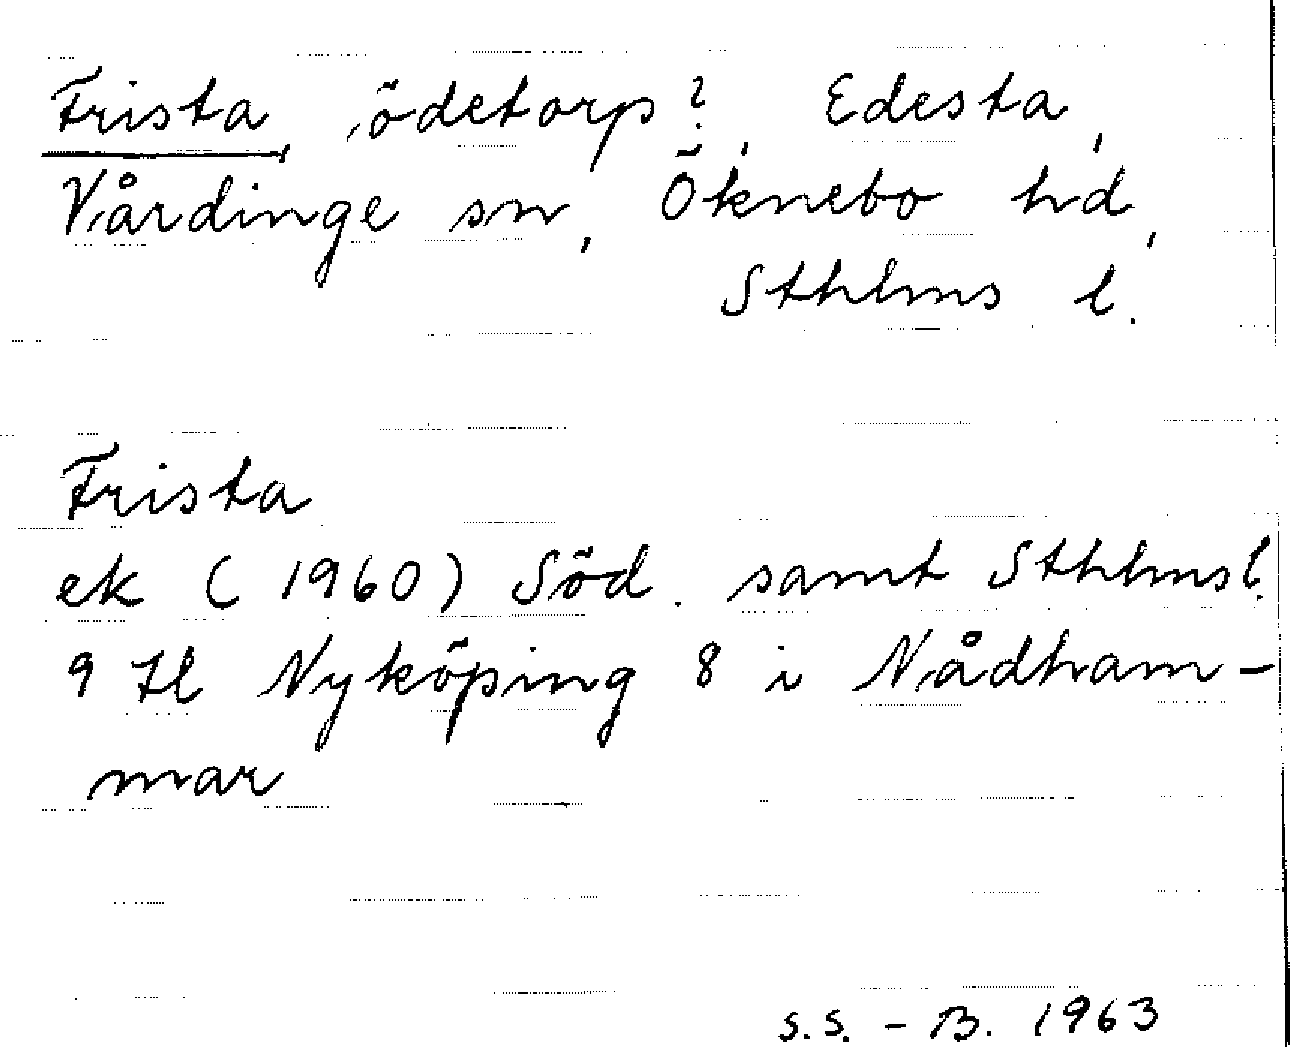 Frista, ödetorp?, Edesta,
Vårdinge sn, Öknebo hd,
Sthlms l.
Frista
ek (1960) Söd. samt Sthlmsl.
9 Il Nyköping 8 i Nådham-
mar
S.S. - B. 1963